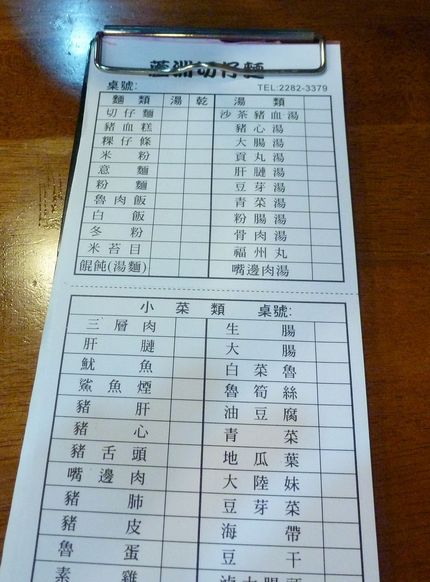 蘆洲切仔麵
桌號: TEL:2282-3379
麵類 湯 乾 湯類
切仔麵 沙茶豬血湯
豬血糕 豬心湯
粿仔條 大腸湯
米粉 貢丸湯
意麵 肝腱湯
粉麵 豆芽湯
魯肉飯 青菜湯
白飯 粉腸湯
冬粉 骨肉湯
米苔目 福州丸
餛飩(湯麵) 嘴邊肉湯
小菜類 桌號:
三層肉 生腸
肝腱 大腸
魷魚 白菜魯
鯊魚煙 魯筍絲
豬肝 油豆腐
豬心 青菜
豬舌頭 地瓜葉
嘴邊肉 大陸妹
豬肺 豆芽菜
豬皮 海帶
魯蛋 豆干
素雞